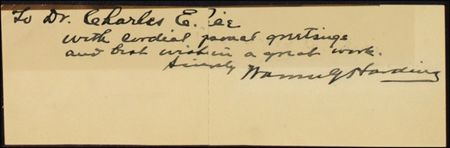 To Dr. Charles E.
with cordial personal greetings
and best wishes in a great work.
Sincerely Warren G Harding